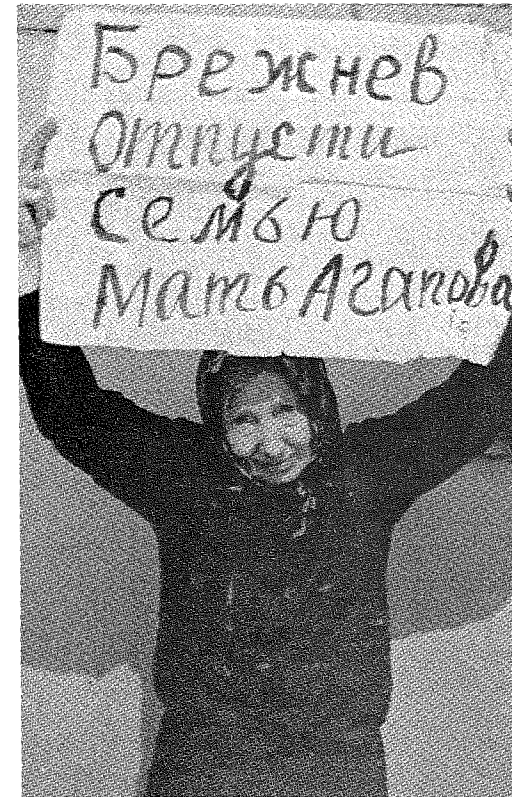 Брежнев
отпусти
семью
Мать Агапова